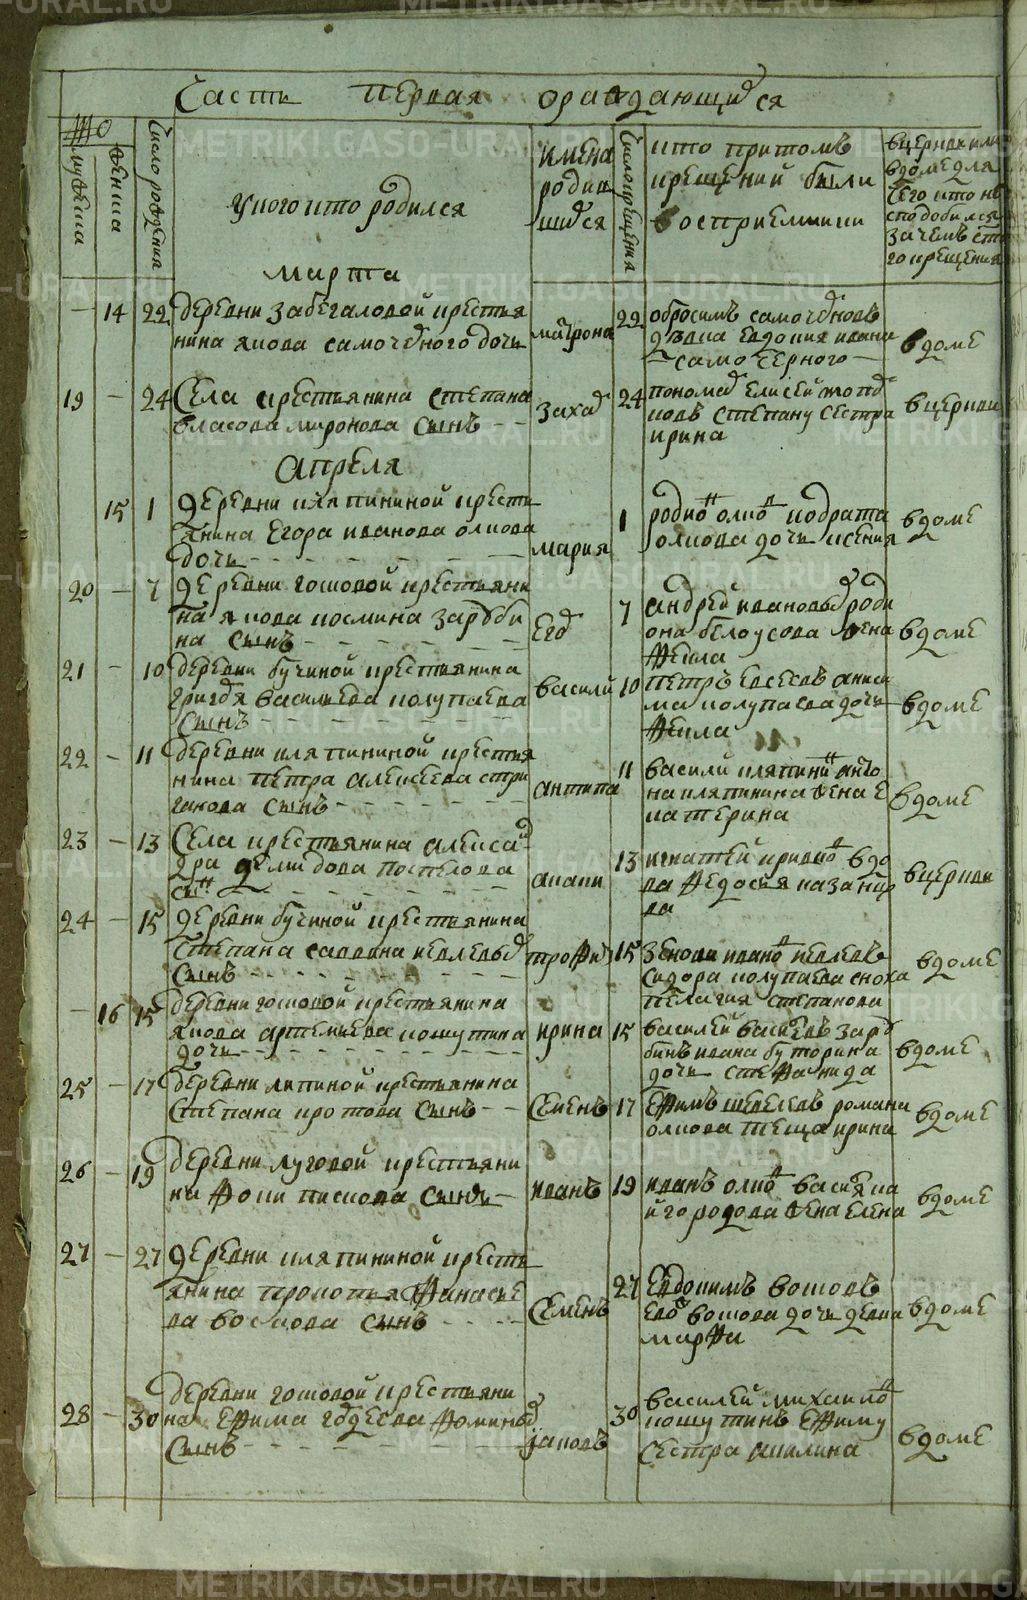 Часть первая ораждающихся
Что
мужеска
женска
Число рождения
У кого кто родился
имена
родив
шихся
Число крещения
кто притомъ
крещении были
восприемники
вцеркви или
вдоме для
чего кто не
сподобился
зачемъ ста
го крещения
марта
14 22 деревни Забегаловой крестья
нина якова самочерного дочь
матрона
22 абросимъ самочерновъ
девка евдокия ивана
самочерного
вдоме
19 24 Села крестьянина степана
власова миронова сынъ
захар
24 пономарь елисей топор
ковъ степану сестра
ирина
вцеркви
апреля
15 1 деревни кляпининой кресть
янина Егора иванова олкова
дочь
мария
1 родион олков кодрата
олкова дочь ксения
вдоме
20 7 деревни гошовой крестьяни
на якова космина заруби
на сынъ
Егор
7 андрей ивановъ роди
она белоусова жена
фекла
вдоме
21 10 деревни бучиной крестьянина
григоря васильева полупаева
сынъ
василий
10 петръ евсеевъ аниси
ма полупаева дочь
фекла
вдоме
22 11 деревни кляпининой крестья
нина петра алексеева стри
ганова сынъ
антипа
11 василий кляпинин анто
на кляпинина жена е
катерина
вдоме
23 13 Села крестьянина алекса
дра демидова поспелова
сын
анани
13 игнатей кривко вдо
ва федосья казанце
ва
вцеркви
24 15 деревни бучиной крестьянина
степана саввина
сынъ
трофим
15 зеновей иванов
сидора полупаева сноха
пелагия степанова
вдоме
16 15 деревни гошовой крестьянина
якова артемьева кокшутина
дочь
ирина
15 василей васильевъ зару
бинъ ивана буторина
дочь стефанида
вдоме
25 17 деревни липиной крестьянина
степана протова сынъ
Семенъ
17 ефимъ шевелевъ романа
олкова теща ирина
вдоме
26 19 деревни луговой крестьяни
на фоки пискова сынъ
иванъ
19 иванъ олков василья ка
йгородова жена елена
вдоме
27 27 деревни кляпининой кресть
янина прокопья афанасье
ва волкова сынъ
Семенъ
27 Евдокимъ волковъ
евдо волкова дочь девка
марфа
вдоме
28 30 деревни гошовой крестьяни
на ефима гордеева фоминых
сынъ
іаковъ
30 василей михаилов
кокшутинъ ефиму
сестра акилина
вдоме
METRIKI.GASO-URAL.RU